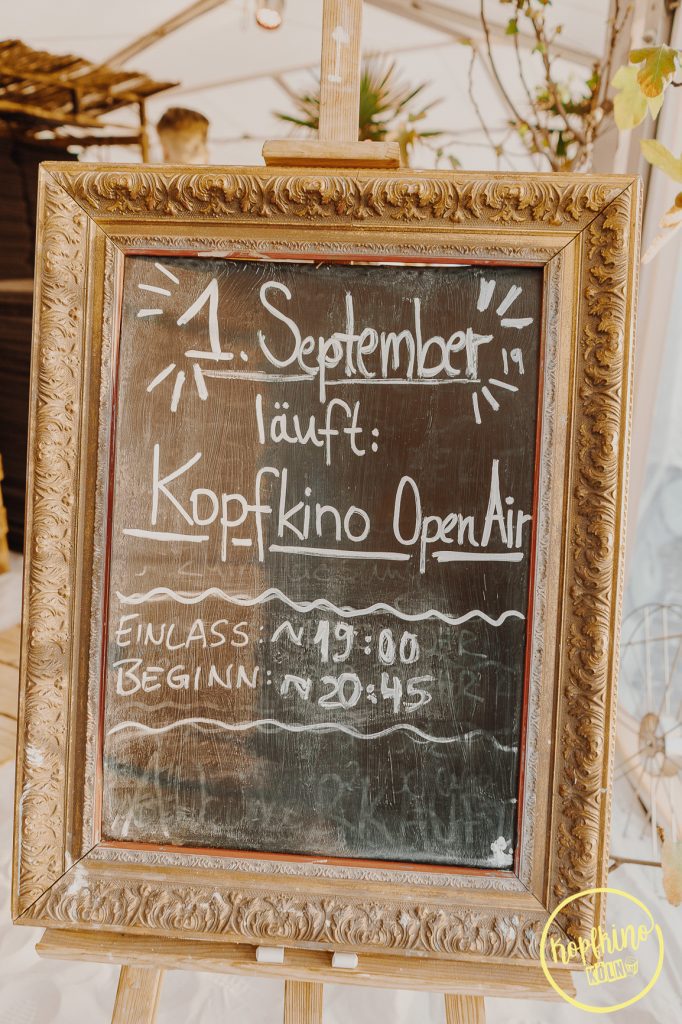 1. September 19
läuft:
Kopfkino OpenAir
EINLASS: ~19:00
BEGINN: ~20:45
Kopfkino
KÖLN